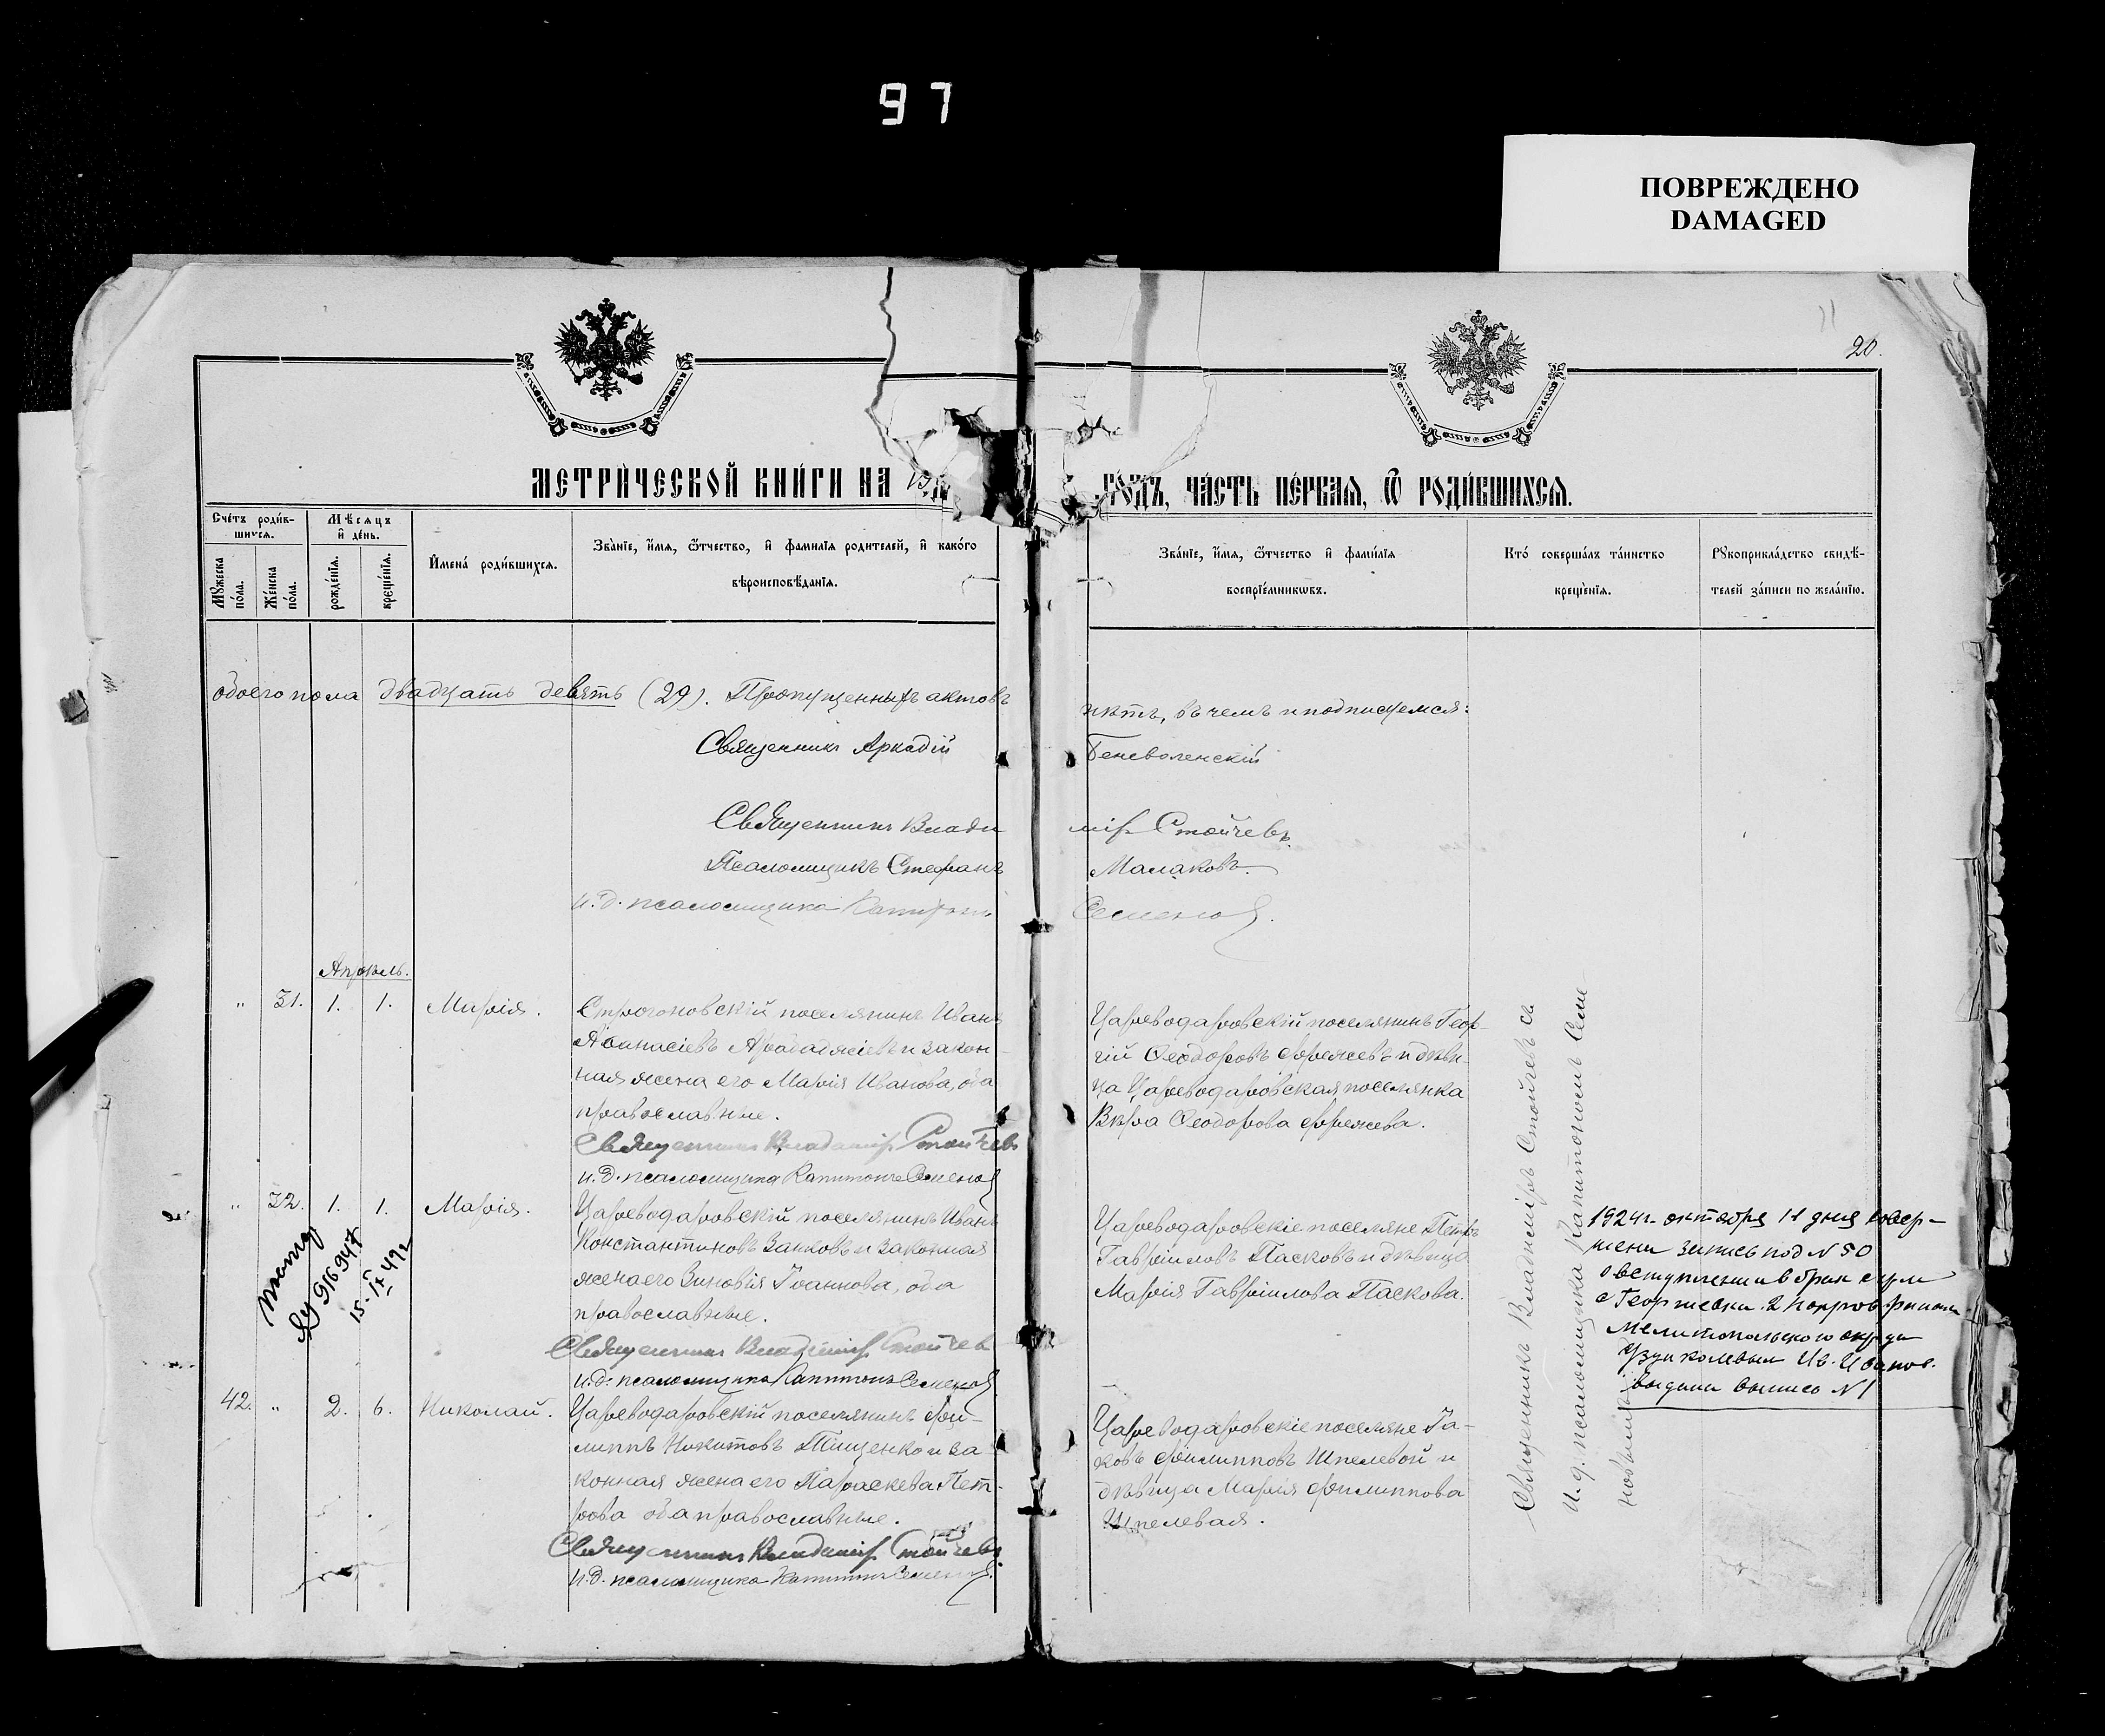 97
ПОВРЕЖДЕНО
DAMAGED
20.
МЕТРИ́ЧЕСКОЙ КНИ́ГИ НА
ГО́ДЪ, ЧА́СТЬ ПЕ́РВАЯ, Ѽ РОДИ́ВШИХСЯ.
Сче́тъ роди́в-
шихся.
Мѣ́сяцъ
и҆ де́нь.
Мꙋ́жеска
по́ла.
Же́нска
по́ла.
рожде́нїя.
креще́нїя.
И҆мена̀ роди́вшихся.
Зва́нїе, и҆́мя, ѻ҆́тчество, и҆ фами́лїя родителей, и҆ како́го
вѣроисповѣ́данїя.
Зва́нїе, и҆́мя, ѻ҆́тчество и҆ фами́лїя
воспрїе́мникѡвъ.
Кто́ соверша́лъ та́инство
креще́нїя.
Рꙋкоприкла́дство свидѣ́-
телей за́писи по жела́нїю.
обоего пола двадцать девять (29). Пропущенныхъ актовъ
нѣтъ, въ чемъ и подписуемся:
Священникъ Аркадій
Беневоленскій
Священникъ Влади
міръ Стойчевъ.
Псаломщикъ Стефанъ
Малаковъ.
и.д. псаломщика Капитонъ
Семеновъ.
Апрѣль.
" 31. 1. 1. Марія.
Строгоновскій поселянинъ Иванъ
Аѳанасіевъ Арабаджіевъ и закон-
ная жена его Марія Иванова, оба
православные.
Священникъ Владиміръ Стойчевъ
и.д. псаломщика Капитонъ Семеновъ
Цареводаровскій поселянинъ Геор-
гій Ѳеодоровъ Фрежевъ и дѣви-
ца Цареводаровская поселянка
Вѣра Ѳеодорова Фрежева.
" 32. 1. 1. Марія.
Цареводаровскій поселянинъ Иванъ
Константиновъ Занковъ и законная
жена его Зиновія Іоаннова, оба
православные.
Священникъ Владиміръ Стойчев
и.д. псаломщика Капитонъ Семеновъ
916947
15-IX 49г
Цареводаровскіе поселяне Петръ
Гавріиловъ Пасковъ и дѣвица
Марія Гавріилова Паскова.
1924г. октября 11 дня совер-
шена запись под N 50
о вступлении в брак
с Георгиевки
Мелитопольского округа
Ив. Иванов.
выдана выпись N 1
42. " 2. 6. Николай.
Цареводаровскій поселянинъ Фи-
липпъ Никитовъ Тищенко и за-
конная жена его Параскева Пет-
рова оба православные.
Священникъ Владиміръ Стойчевъ
и.д. псаломщика Капитонъ Семеновъ
Цареводаровскіе поселяне Іа-
ковъ Филипповъ Шпелевой и
дѣвица Марія Филиппова
Шпелевая.
Священникъ Владиміръ Стойчевъ съ
И. д. псаломщика Капитономъ Семе
новымъ